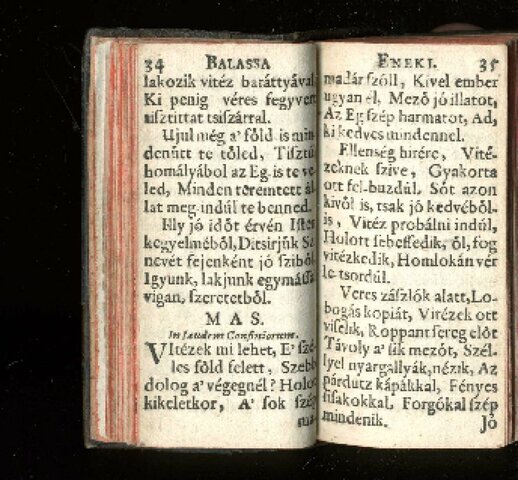 34 BALASSA
lakozik vitéz baráttyával
Ki penig véres fegyvert
tisztittat tsiszárral.
Ujul még a' főld is min-
denütt te tőled, Tisztúl
homályábol az Eg is te ve-
led, Minden teremtett ál-
lat meg indúl te benned.
Ily jó időt érvén Isten
kegyelméből, Ditsirjük Sz.
nevét fejenként jó sziből
Igyunk, lakjunk egymással
vigan, szeretetből.
MAS.
In laudem Confiniorum.
VItézek mi lehet, E' szé-
les főld felett, Szebb
dolog a' végegnél? Holott
kikeletkor, A' sok szép
ma-
ENEKI. 35
madár szóll, Kivel ember
ugyan él, Mező jó illatot,
Az Eg szép harmatot, Ad,
ki kedves mindennel.
Ellenség hirére, Vité-
zeknek szive, Gyakorta
ott fel-buzdúl. Sőt azon
kivől is, tsak jó kedvéből
is, Vitéz probálni indúl,
Holott sebessedik, ől, fog
vitézkedik, Homlokán vér
le tsordúl.
Veres zászlók alatt, Lo-
bogás kopiát, Vitézek ott
viselik, Roppant sereg előt
Távoly a' sik mezőt, Szél-
lyel nyargallyák, nézik, Az
párdutz kápákkal, Fényes
sisakokkal, Forgókal szép
mindenik. Jó